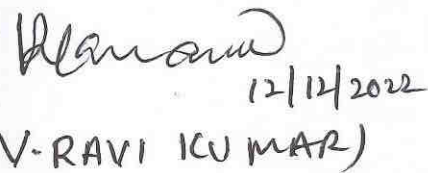 12/12/2022
V.RAVI KUMAR)